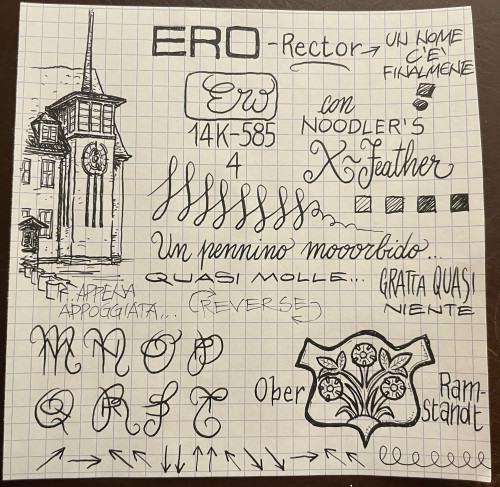 ERO-Rector→
UN NOME
C'E'
FINALMENE
Ero
14K-585
4
con
NOODLER'S
X~Feather
Un pennino mooorbido...
QUASI MOLLE...
GRATTA QUASI
NIENTE
APPENA
APPOGGIATA...
(REVERSE)
M N O P
Q R S T
Ober
Ram-
standt